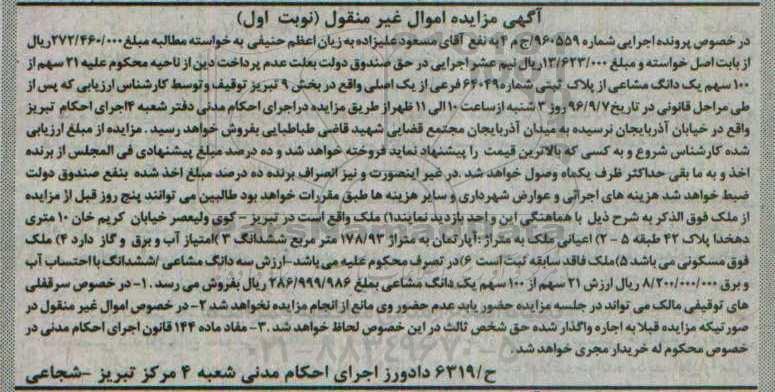 آگهی مزایده اموال غیر منقول (نوبت اول)
در خصوص پرونده اجرایی شماره ۹۶۰۵۵۹/ج م ۴ به نفع آقای مسعود علیزاده به زیان اعظم حنیفی به خواسته مطالبه مبلغ ۲۷۲/۴۶۰/۰۰۰ ریال
از بابت اصل خواسته و مبلغ ۱۳/۶۲۳/۰۰۰ ریال نیم عشر اجرایی در حق صندوق دولت بعلت عدم پرداخت دین از ناحیه محکوم علیه ۲۱ سهم از
۱۰۰ سهم یک دانگ مشاعی از پلاک ثبتی شماره ۶۴۰۴۹ فرعی از یک اصلی واقع در بخش ۹ تبریز توقیف و توسط کارشناس ارزیابی که پس از
طی مراحل قانونی در تاریخ ۹۶/۹/۷ روز ۳ شنبه از ساعت ۱۰ الی ۱۱ ظهر از طریق مزایده در اجرای احکام مدنی دفتر شعبه ۴ اجرای احکام تبریز
واقع در خیابان آذربایجان نرسیده به میدان آذربایجان مجتمع قضایی شهید قاضی طباطبایی بفروش خواهد رسید. مزایده از مبلغ ارزیابی
شده کارشناس شروع و به کسی که بالاترین قیمت را پیشنهاد نماید فروخته خواهد شد و ده درصد مبلغ پیشنهادی فی المجلس از برنده
اخذ و به ما بقی حداکثر ظرف یکماه وصول خواهد شد. در غیر اینصورت و نیز انصراف برنده ده درصد مبلغ اخذ شده بنفع صندوق دولت
ضبط خواهد شد هزینه های اجرائی و عوارض شهرداری و سایر هزینه ها طبق مقررات خواهد بود طالبین می توانند پنج روز قبل از مزایده
از ملک فوق الذکر به شرح ذیل با هماهنگی این واحد بازدید نمایند ۱) ملک واقع است در تبریز - کوی ولیعصر خیابان کریم خان ۱۰ متری
دهخدا پلاک ۴۲ طبقه ۵ - ۲) اعیانی ملک به متراژ : آپارتمان به متراژ ۱۷۸/۹۲ متر مربع ششدانگ ۳) امتیاز آب و برق و گاز دارد ۴) ملک
فوق مسکونی می باشد ۵) ملک فاقد سابقه ثبت است ۶) در تصرف محکوم علیه می باشد- ارزش سه دانگ مشاعی /ششدانگ با احتساب آب
و برق ۸/۲۰۰/۰۰۰/۰۰۰ ریال ارزش ۲۱ سهم از ۱۰۰ سهم یک دانگ مشاعی بمبلغ ۲۸۶/۹۹۹/۹۸۶ ریال بفروش می رسد. ۱- در خصوص سرقفلی
های توقیفی مالک می تواند در جلسه مزایده حضور یابد عدم حضور وی مانع از انجام مزایده نخواهد شد ۲- در خصوص اموال غیر منقول در
صورتیکه مزایده قبلا به اجاره واگذار شده حق شخص ثالث در این خصوص لحاظ خواهد شد. ۳- مفاد ماده ۱۴۴ قانون اجرای احکام مدنی در
خصوص محکوم له خریدار مجری خواهد شد.
ح/۶۳۱۹ دادورز اجرای احکام مدنی شعبه ۴ مرکز تبریز - شجاعی